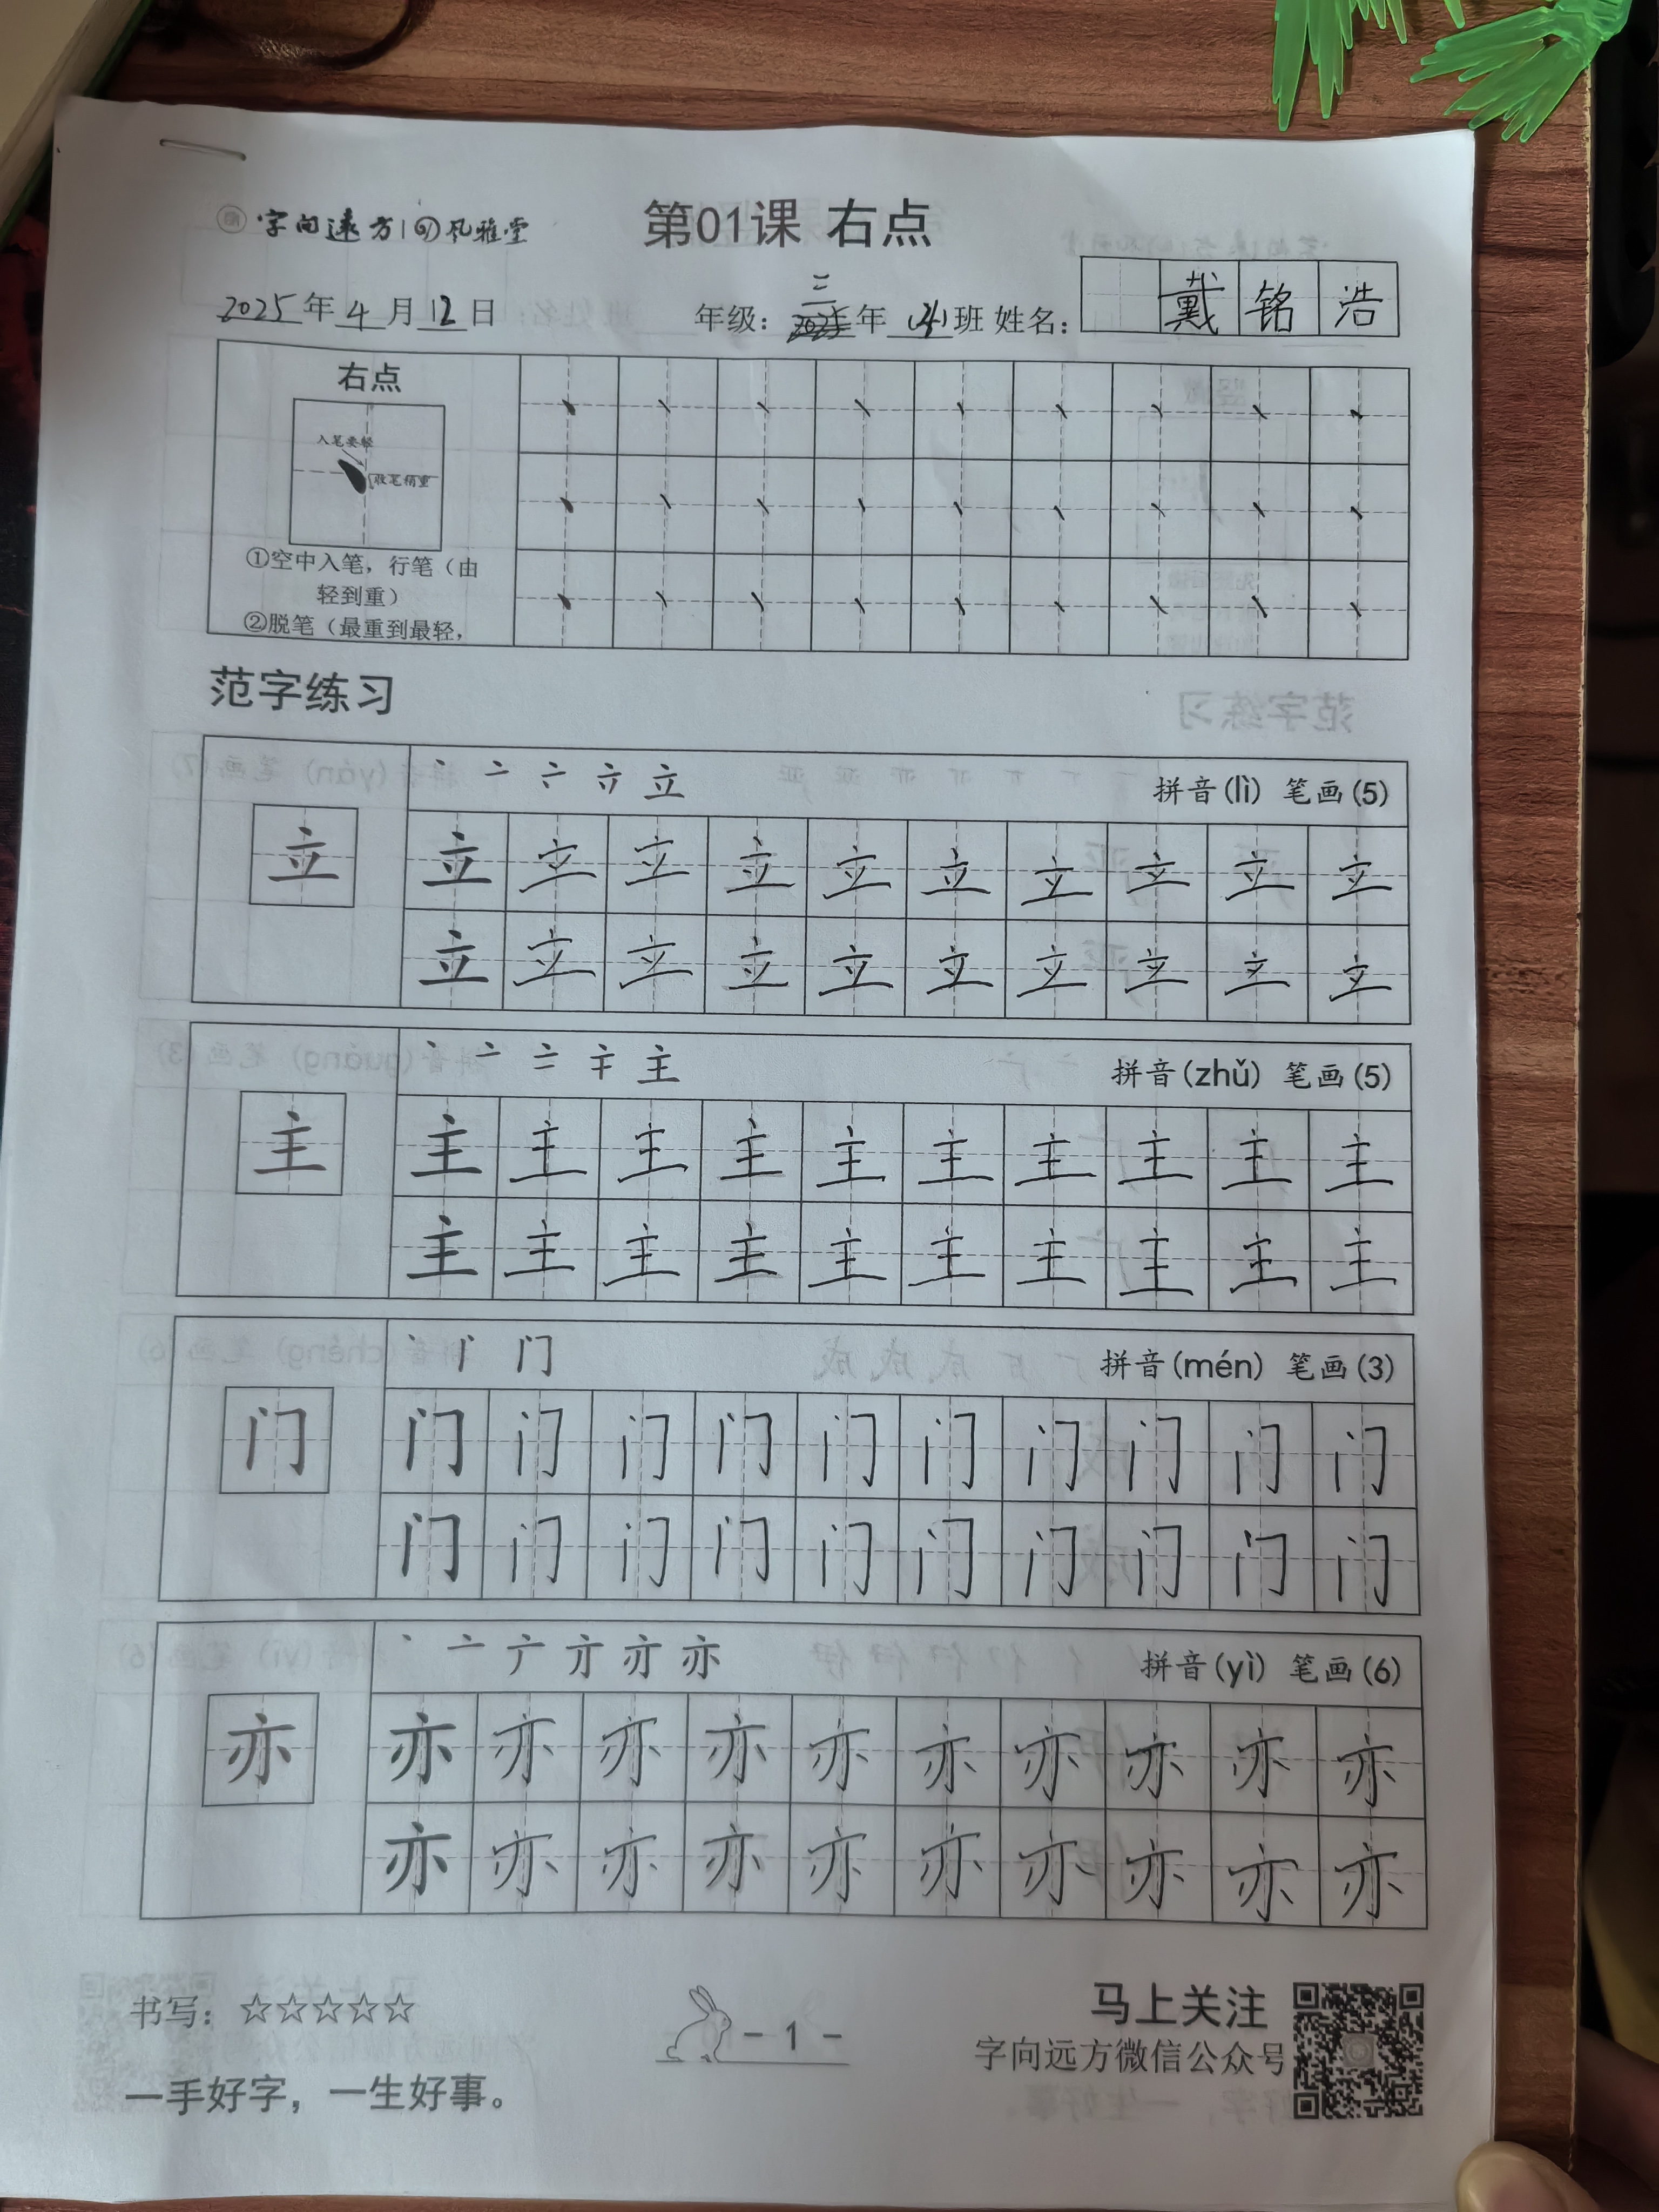 字向远方 风雅堂
第01课 右点
2025年4月12日 年级：三年(4)班 姓名：戴铭浩
右点
入笔要轻
收笔稍重
①空中入笔，行笔（由
轻到重）
②脱笔（最重到最轻，
范字练习
立 拼音(lì) 笔画(5)
立 立 立 立 立 立 立 立 立 立 立
立 立 立 立 立 立 立 立 立 立
主 拼音(zhǔ) 笔画(5)
主 主 主 主 主 主 主 主 主 主 主
主 主 主 主 主 主 主 主 主 主
门 拼音(mén) 笔画(3)
门 门 门 门 门 门 门 门 门 门 门
门 门 门 门 门 门 门 门 门 门
亦 拼音(yì) 笔画(6)
亦 亦 亦 亦 亦 亦 亦 亦 亦 亦 亦
亦 亦 亦 亦 亦 亦 亦 亦 亦 亦
书写：☆☆☆☆☆
一手好字，一生好事。
- 1 -
马上关注
字向远方微信公众号